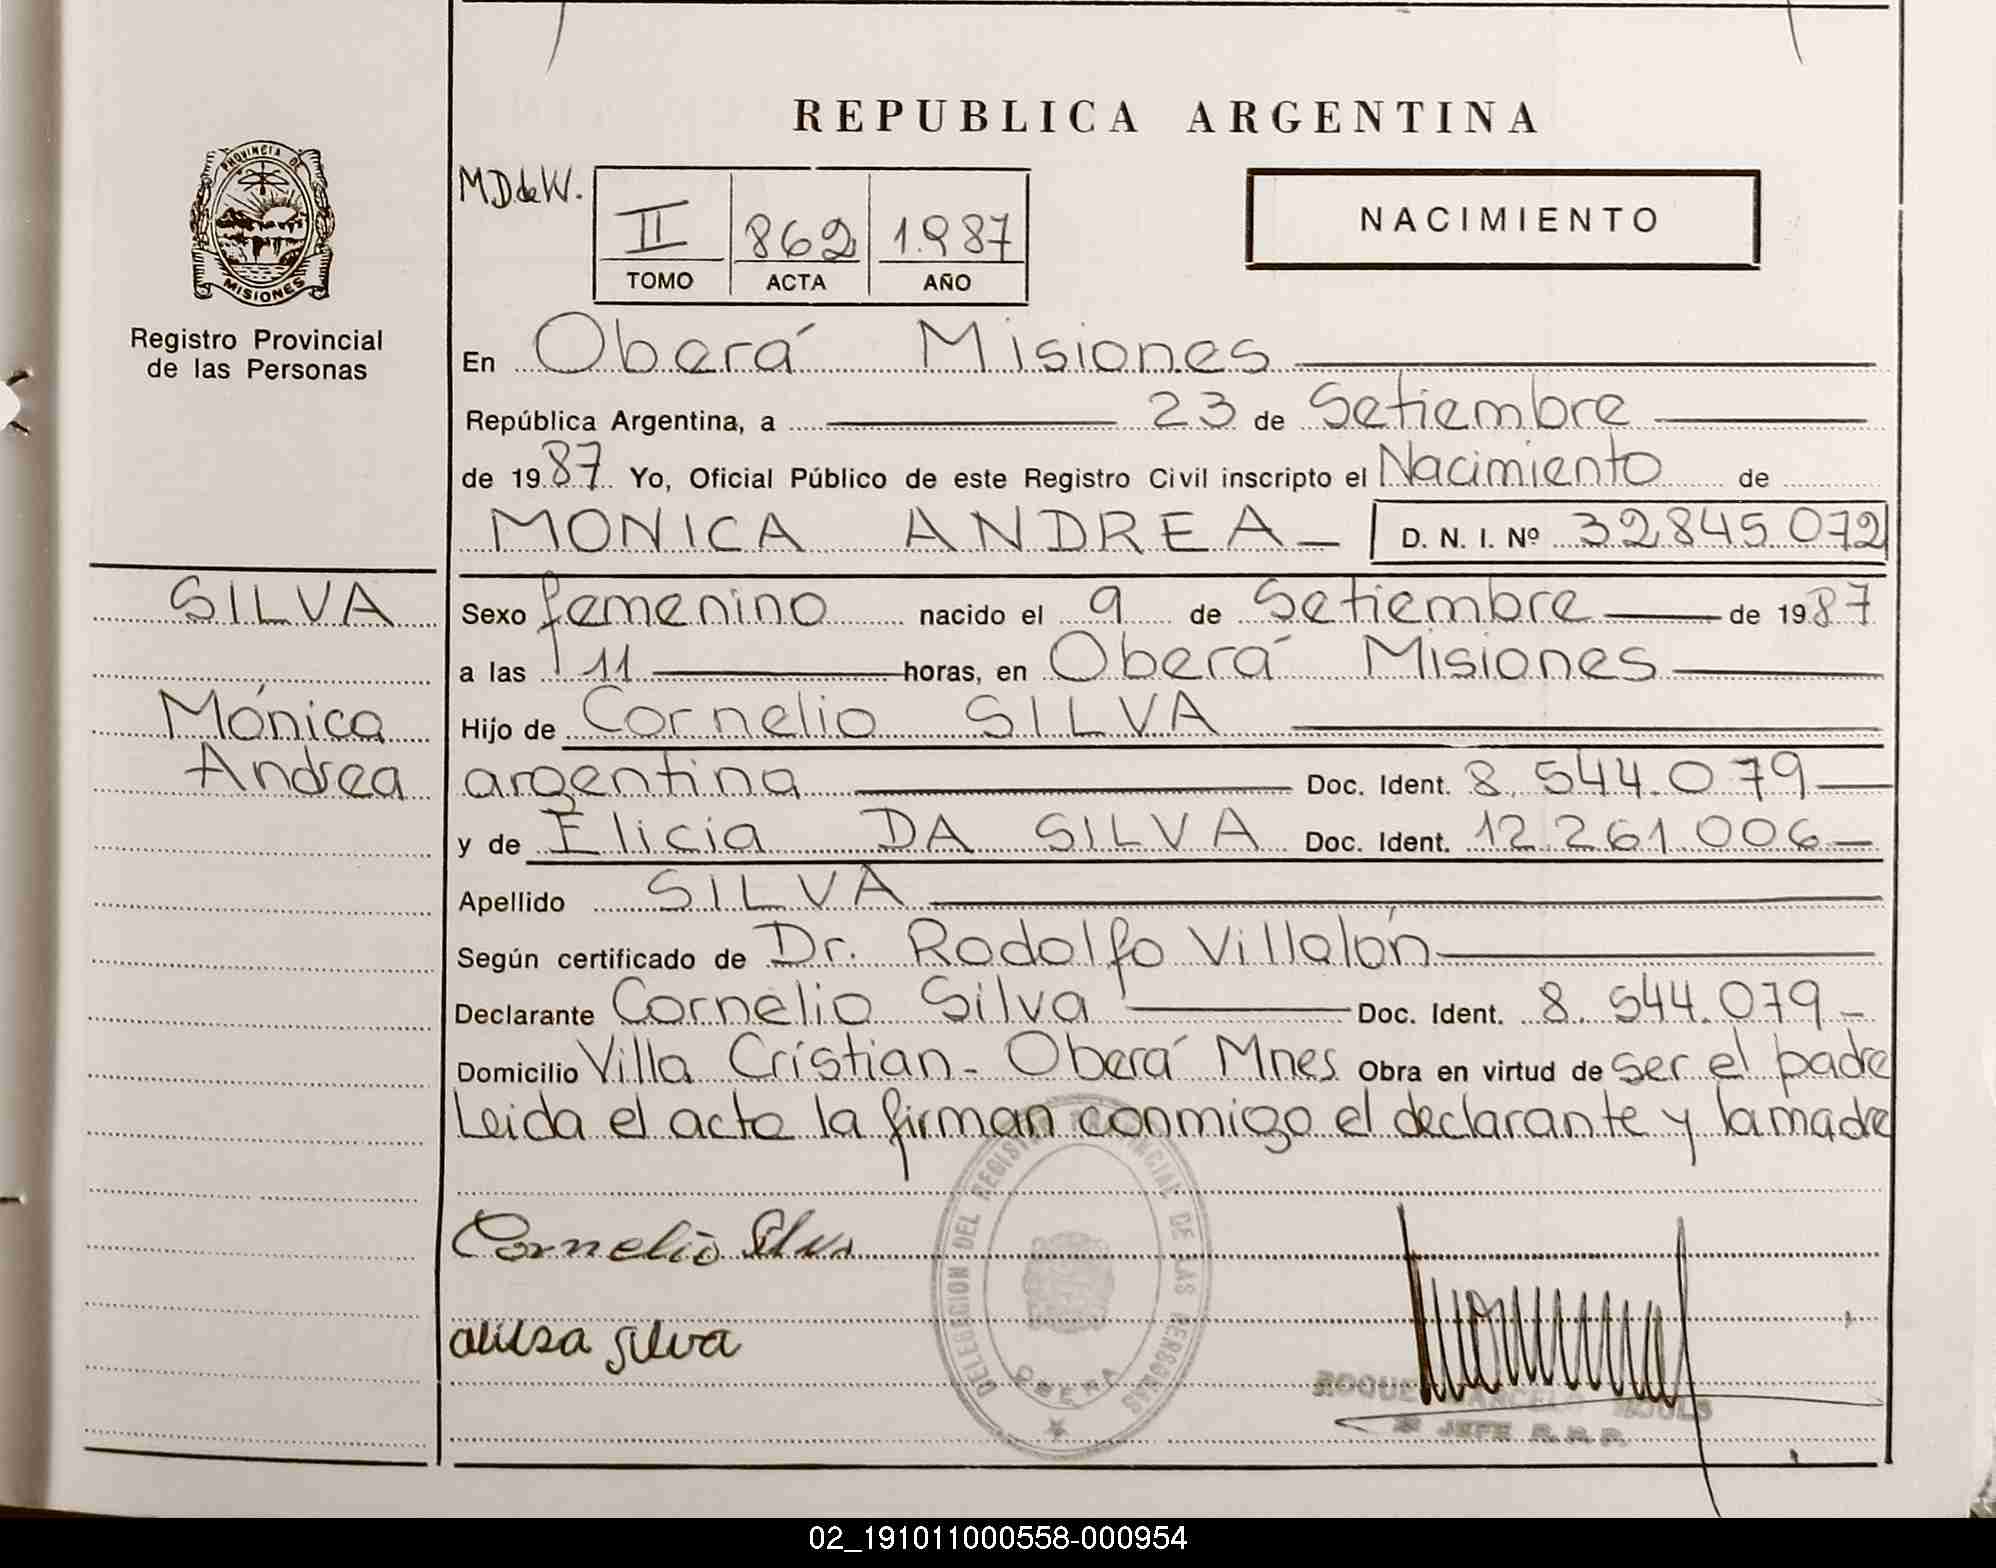 REPUBLICA ARGENTINA
PROVINCIA DE
MISIONES
Registro Provincial
de las Personas
M D de W.
II 862 1.987
TOMO ACTA AÑO
NACIMIENTO
En Oberá Misiones
República Argentina, a 23 de Setiembre
de 1987 Yo, Oficial Público de este Registro Civil inscripto el Nacimiento de
MONICA ANDREA D. N. I. Nº 32845072
SILVA
Mónica
Andrea
Sexo femenino nacido el 9 de Setiembre de 1987
a las 11 horas, en Oberá Misiones
Hijo de Cornelio SILVA
argentina Doc. Ident. 8.544.079
y de Elicia DA SILVA Doc. Ident. 12.261.006
Apellido SILVA
Según certificado de Dr. Rodolfo Villalón
Declarante Cornelio Silva Doc. Ident. 8.544.079
Domicilio Villa Cristian - Oberá Mnes Obra en virtud de ser el padre
Leida el acta la firman conmigo el declarante y la madre
Cornelio Silva
silva
DELEGACION DEL REGISTRO PROVINCIAL DE LAS PERSONAS
OBERA
ROQUE
JEFE R.P.P.
02_191011000558-000954